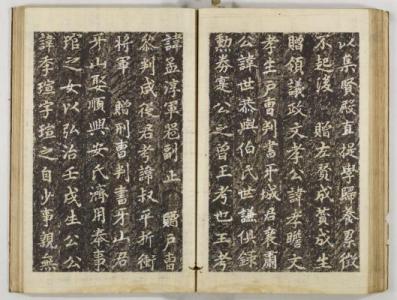 以集賢殿直提學歸養累徵
不起後 贈左贊成贊成生
贈領議政文孝公諱孝瞻文
孝生戶曹判書牙城君襄肅
公諱世恭與伯氏世謙俱錄
勳券寔公之曾王考也王考
諱孟淳軍器副正 贈戶曹
參判成後君考諱叔平折衝
將軍 贈刑曹判書牙山君
牙山娶順興安氏濟用奉事
琯之女以弘治壬戌生公公
諱季瑄字瑄之自少事親無